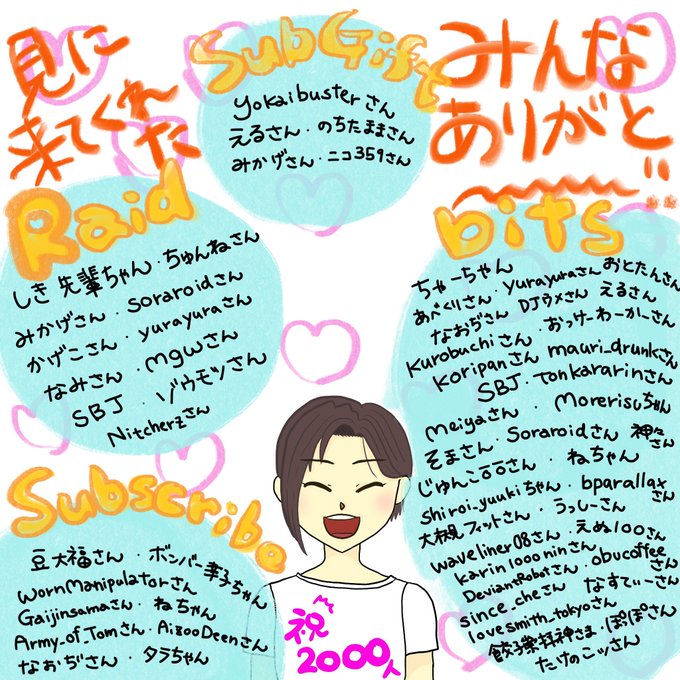 見に
来てくれた
SubGift
yokaibusterさん
えるさん・のちたままさん
みかげさん・ニコ359さん
みんな
ありがと
Raid
しき先輩ちゃん・ちゅんねさん
みかげさん・soraroidさん
かげこさん・yurayuraさん
なみさん・mgwさん
SBJ・ゾウモツさん
Nitcherzさん
bits
ちゃーちゃん
あべくりさん・yurayuraさん おとたんさん
なおぢさん DJウメさん えるさん
kurobuchiさん・おっけーわーかーさん
koripanさん mauri_drunkさん
SBJ・tonkararinさん
meiyaさん・morerisuちゃん
そまさん・Soraroidさん 神々さん
じゅんこ○○さん・ねちゃん
shiroi_yuukiちゃん・bparallaxさん
大槻フィットさん・うっしーさん
waveliner08さん・えぬ100さん
karin1000ninさん・obucoffeeさん
DeviantRobotさん・なすてぃーさん
since_cheさん
lovesmith_tokyoさん
餃子業神さま・ぽぽさん
たけのこッさん
Subscribe
豆大福さん・ボンバー幸子ちゃん
wornManipulatorさん
Gaijinsamaさん・ねちゃん
Army_of_Tomさん・AizooDeenさん
なおぢさん・タラちゃん
祝
2000人